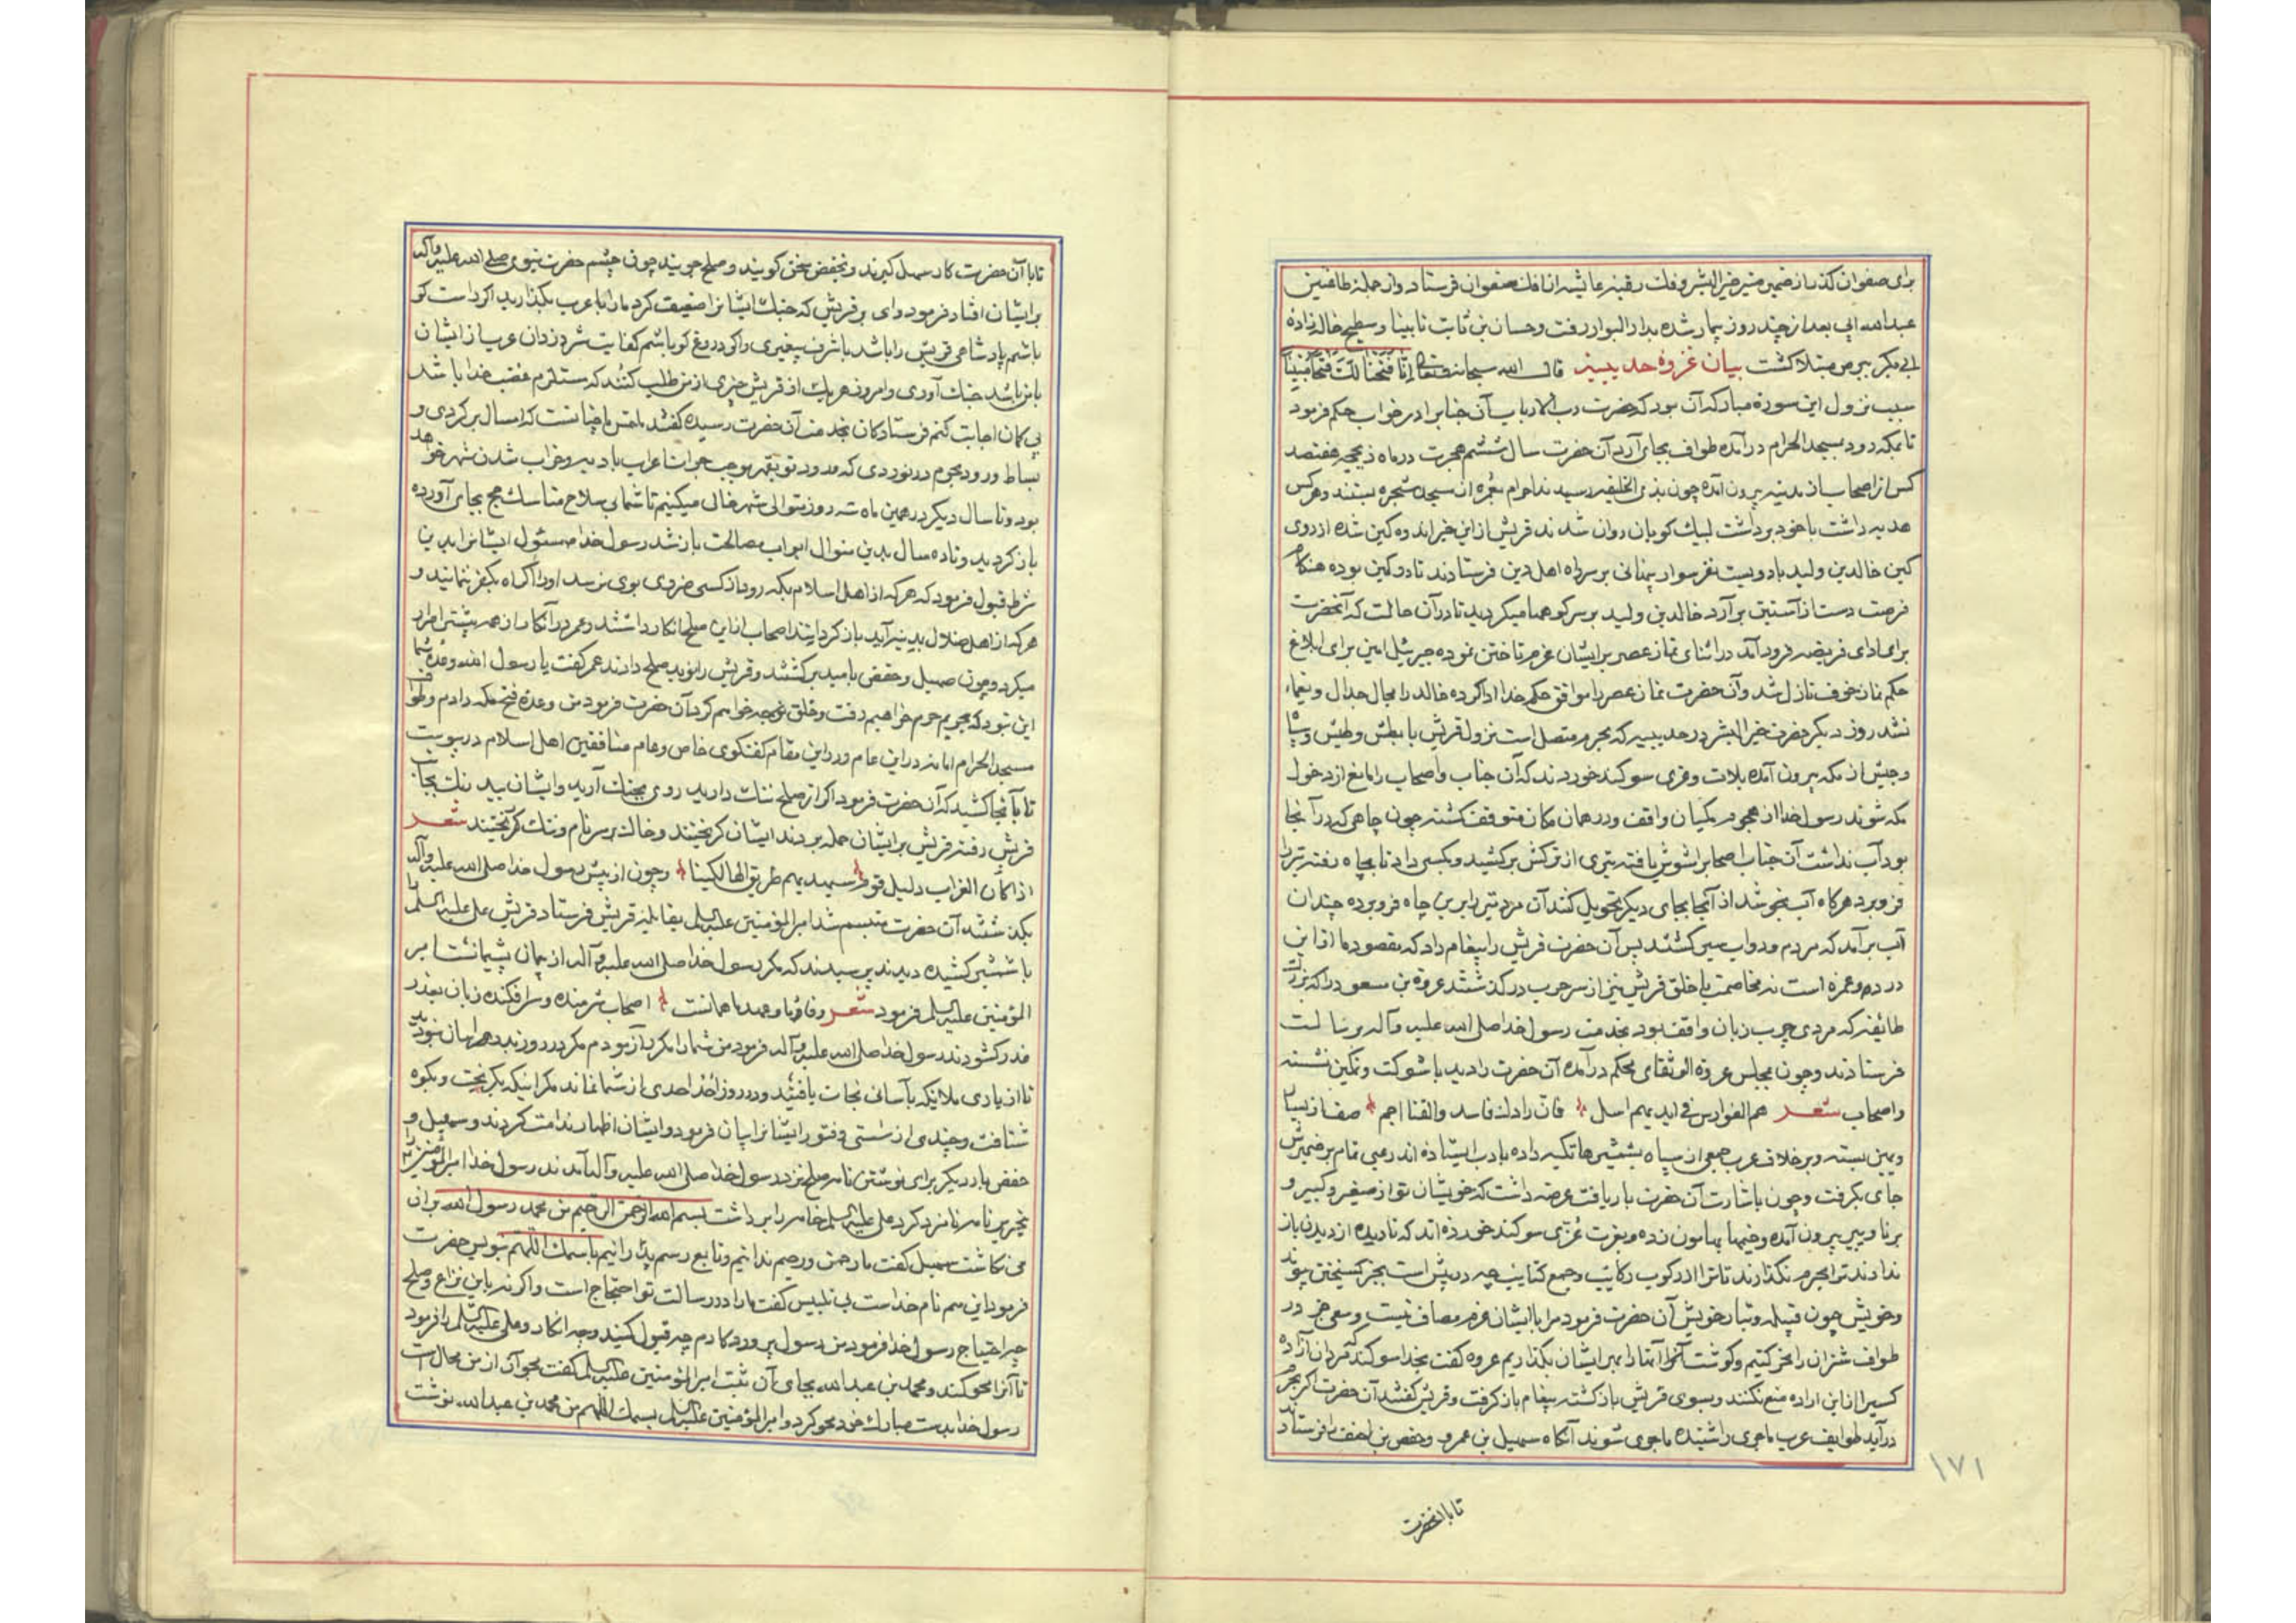 برای صفوان کذر از ضمیر منیر خیر البشر و فلک رقیه عایشه از افک صفوان فرستاد و از جمله طاعنین
عبدالله ابی بعد از چند روز بیمار شده بدار البوار رفت و حسان بن ثابت نابینا و سطیح خاله زاده
ابی بکر ببرص مبتلا کشت بیان غزوه حدیبیه قال الله سبحانه و تعالی انا فتحنا لک فتحا مبینا
سبب نزول این سوره مبارکه آن بود که حضرت رب الارباب آن جناب را در خواب حکم فرمود
تا بمکه رود بمسجد الحرام درآمده طواف بجای آرد آن حضرت سال ششم هجرت در ماه ذیحجه هفتصد
کس از اصحاب از مدینه بیرون آمده چون بذی الحلیفه رسیدند احرام عمره از مسجد شجره بستند و هر کس
هدیه داشت با خود برداشت لبیک کویان روان شدند قریش از این خبر اندوه کین شده از روی
کین خالد بن ولید با دویست نفر سوار پنهانی بر سر راه اهل دین فرستادند تا در کمین بوده هنکام
فرصت دست از آستین برآرد خالد بن ولید بر سر کوهها میکردید تا در آن حالت که آنحضرت
برای ادای فریضه فرود آمد در اثنای نماز عصر بر ایشان عزم تاختن نموده جبرئیل امین برای ابلاغ
حکم نماز خوف نازل شد و آن حضرت نماز عصر را موافق حکم خدا ادا کرده خالد را مجال جدال و یغماء
نشد روز دیکر حضرت خیر البشر در حدیبیه که بحرم متصل است نزول قریش با بطش و طیش و
و جیش از مکه بیرون آمده بلات و عزی سوکند خوردند که آن جناب و اصحاب را مانع از دخول
مکه شوند رسول خدا از هجوم مکیان واقف و در همان مکان متوقف کشته چون چاهی که در آنجا
بود آب نداشت آن جناب اصحاب را مشوش یافته تیری از ترکش برکشید و بکسی داد تا بچاه رفته تیر را
فرو برد هرکاه آب بجوشد از آنجا بجای دیکر تحویل کند آن مرد تیر را برین چاه فرو برده چندان
آب برآمد که مردم و دواب سیر کشتند پس آن حضرت قریش را پیغام داد که مقصود ما از این
در حج و عمره است نه مخاصمت با خلق قریش نیز از سر حرب در کذشتند عروة بن مسعود را که بزرک
طائفه که مردی چرب زبان و واقف بود بخدمت رسول خدا صلی الله علیه و آله برسالت
فرستادند و چون بمجلس عروة الوثقای محکم درآمده آن حضرت را دید با شوکت و تمکین نشسته
و اصحاب شعر هم الفوارس فی ایدیهم اسل فان رادک فاسد والقنا اجم صف از یسار
و یمین بسته و بر خلاف عرب جمعی از سپاه بشمشیرها تکیه داده بادب ایستاده اند رعبی تمام بر ضمیرش
جای بکرفت و چون باشارت آن حضرت بار یافت عرضه داشت که خویشان تو از صغیر و کبیر و
برنا و پیر بیرون آمده و خیمها بهامون زده و بعزت عزی سوکند خورده اند که تا دیده از دیدن باز
ندارند ترا بحرم نکذارند تا ترا از رکوب رکائب و جمع کتائب چه در پیش است بجز کسیختن پیوند
و خویش چون قبیله و تبار خویش آن حضرت فرمود مرا با ایشان عزم مصاف نیست و سعی جز در
طواف شتران را نحر کنیم و کوشت آنها را برای ایشان بکذاریم عروه کفت بخدا سوکند که مردان آزاده
کسی را از این اراده منع نکنند و بسوی قریش بازکشته پیغام بازکرفت و قریش کفتند آن حضرت اکر بحرم
درآید طوایف عرب ما جری را شنیده ما جری شوند آنکاه سهیل بن عمرو و حفص بن احنف را فرستادند
تا با آنحضرت
۱۷۱
تا با آن حضرت کار سهل کیرند و بخفض سخن کویند و صلح جویند چون چشم حضرت نبوی صلی الله علیه و آله
بر ایشان افتاد فرمود وای بر قریش که جنک ایشان را ضعیف کرد ما را با عرب بکذارید اکر راست کو
باشم پادشاهی قریش را باشد با شرف پیغمبری و اکر دروغ کو باشم کفایت شر دزدان عرب از ایشان
با من باشد جنک آوری و امروز هر یک از قریش چیزی از من طلب کنند که مستلزم غضب خدا باشد
بی کمان اجابت کنم فرستادکان بخدمت آن حضرت رسیده کفتند ملتمس ما چنانست که امسال برکردی و
بساط ورود بحرم درنوردی که ورود تو بقهر موجب جرات اعراب بادیه و خراب شدن شهر خواهد
بود و تا سال دیکر در همین ماه سه روز متوالی شهر خالی میکنیم تا شما بی سلاح مناسک حج بجای آورده
باز کردید و تا ده سال بدین منوال ابواب مصالحت باز شد رسول خدا مسئول ایشان را بدین
شرط قبول فرمود که هر که از اهل اسلام بمکه رود از کسی ضرری بوی نرسد او را اکراه بکفر ننمایند و
هر که از اهل ضلال بمدینه آید باز کردانند اصحاب از این صلح انکار داشتند و عمر در انکار از همه بیشتر اصرار
میکرد و چون سهیل و حفص با امید برکشتند و قریش را نوید صلح دادند عمر کفت یا رسول الله وعده شما
این نبود که بحریم حرم خواهیم رفت و حلق خواهیم کرد آن حضرت فرمود من وعده فتح مکه دادم و طواف
مسجد الحرام اما نه در این عام و در این مقام کفتکوی خاص و عام منافقین اهل اسلام درپیوست
تا بآنجا کشید که آن حضرت فرمود اکر از صلح ننک دارید روی بجنک آرید و ایشان بیدرنک بجانب
قریش رفته قریش بر ایشان حمله بردند ایشان کریختند و خاک بر سر نام و ننک کریختند شعر
اذا کان الغراب دلیل قوم سیهدیهم طریق الهالکینا و چون از پیش رسول خدا صلی الله علیه و آله
بکذشتند آن حضرت متبسم شد امیر المؤمنین علیه السلم بمقابله قریش فرستاد قریش علی علیه السلم را
با شمشیر کشیده دیدند پرسیدند که مکر رسول خدا صلی الله علیه و آله از پیمان پشیمانست امیر
المؤمنین علیه السلم فرمود شعر وفای ما و عهد ما همانست اصحاب شرمنده و سرافکنده زبان بعذر
غدر کشودند رسول خدا صلی الله علیه و آله فرمود من شما را مکرر آزمودم مکر در روز بدر همراهان نبودید
تا از یاری ملائکه بآسانی نجات یافتید و در روز احد احدی از شما نماند مکر اینکه بکریخت و بکوه
شتافت و چندی از سستی و فتور ایشان را بیان فرمود و ایشان اظهار ندامت کردند و سهیل و
حفص بار دیکر برای نوشتن نامه صلح نزد رسول خدا صلی الله علیه و آله آمدند رسول خدا امیر المؤمنین را
بتحریر نامه نامزد کرد علی علیه السلم خامه را برداشت بسم الله الرحمن الرحیم من محمد رسول الله بر آن
می نکاشت سهیل کفت ما رحمن و رحیم ندانیم و تابع رسم پدرانیم باسمک اللهم بنویس حضرت
فرمود این هم نام خداست بی تلبیس کفت ما را در رسالت تو احتجاج است و اکر نه باین نزاع و صلح
چه احتیاج رسول خدا فرمود من رسول پروردکارم چه قبول کنید و چه انکار و علی علیه السلم را فرمود
تا آنرا محو کند و محمد بن عبدالله بجای آن ثبت امیر المؤمنین علیه السلم کفت محو آن از من محال است
رسول خدا بدست مبارک خود محو کرد و امیر المؤمنین علیه السلم بسمک اللهم من محمد بن عبدالله نوشت